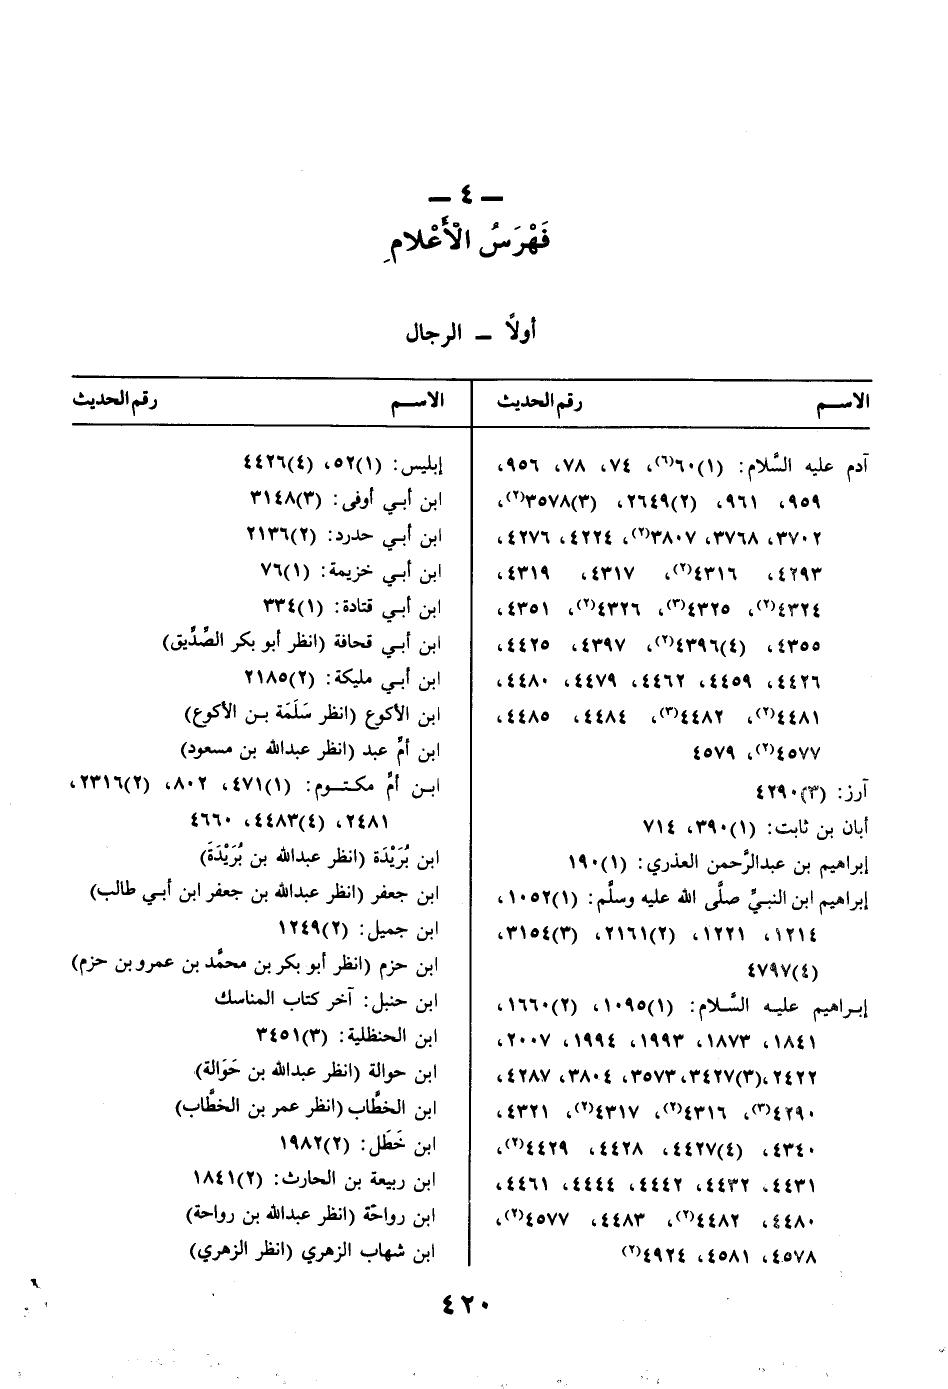 ـ ٤ ـ
فَهْرَسُ الْأَعْلامِ
أولاً ـ الرجال
الاســم رقم الحديث
آدم عليه السَّلام: (١)٦٠(٦)، ٧٤، ٧٨، ٩٥٦،
٩٥٩، ٩٦١، (٢)٢٦٤٩، (٣)٣٥٧٨(٢)،
٣٧٠٢، ٣٧٦٨، ٣٨٠٧(٢)، ٤٢٢٤، ٤٢٧٦،
٤٢٩٣، ٤٣١٦(٢)، ٤٣١٧، ٤٣١٩،
٤٣٢٤(٢)، ٤٣٢٥(٣)، ٤٣٢٦(٢)، ٤٣٥١،
٤٣٥٥، (٤)٤٣٩٦(٢)، ٤٣٩٧، ٤٤٢٥،
٤٤٢٦، ٤٤٥٩، ٤٤٦٢، ٤٤٧٩، ٤٤٨٠،
٤٤٨١(٢)، ٤٤٨٢(٣)، ٤٤٨٤، ٤٤٨٥،
٤٥٧٧(٢)، ٤٥٧٩
آرز: (٣)٤٢٩٠
أبان بن ثابت: (١)٣٩٠، ٧١٤
إبراهيم بن عبدالرَّحمن العذري: (١)١٩٠
إبراهيم ابن النبيِّ صلَّى الله عليه وسلَّم: (١)١٠٥٢،
١٢١٤، ١٢٢١، (٢)٢١٦١، (٣)٣١٥٤،
(٤)٤٧٩٧
إبـراهيم عليـه السَّـلام: (١)١٠٩٥، (٢)١٦٦٠،
١٨٤١، ١٨٧٣، ١٩٩٣، ١٩٩٤، ٢٠٠٧،
٢٤٢٢،(٣)٣٤٢٧، ٣٥٧٣، ٣٨٠٤، ٤٢٨٧،
٤٢٩٠(٣)، ٤٣١٦(٢)، ٤٣١٧(٢)، ٤٣٢١،
٤٣٤٠، (٤)٤٤٢٧، ٤٤٢٨، ٤٤٢٩(٢)،
٤٤٣١، ٤٤٣٢، ٤٤٤٢، ٤٤٤٤، ٤٤٦١،
٤٤٨٠، ٤٤٨٢(٢)، ٤٤٨٣، ٤٥٧٧(٢)،
٤٥٧٨، ٤٥٨١، ٤٩٢٤(٢)
الاســم رقم الحديث
إبليس: (١)٥٢، (٤)٤٤٢٦
ابن أبـي أوفى: (٣)٣١٤٨
ابن أبـي حدرد: (٢)٢١٣٦
ابن أبـي خزيمة: (١)٧٦
ابن أبـي قتادة: (١)٣٣٤
ابن أبـي قحافة (انظر أبو بكر الصِّدِّيق)
ابن أبـي مليكة: (٢)٢١٨٥
ابن الأكوع (انظر سَلَمَة بـن الأكوع)
ابن أمِّ عبد (انظر عبدالله بن مسعود)
ابـن أمِّ مكتـوم: (١)٤٧١، ٨٠٢، (٢)٢٣١٦،
٢٤٨١، (٤)٤٤٨٣، ٤٦٦٠
ابن بُرَيْدَة (انظر عبدالله بن بُرَيْدَة)
ابن جعفر (انظر عبدالله بن جعفر ابن أبـي طالب)
ابن جميل: (٢)١٢٤٩
ابن حزم (انظر أبو بكر بن محمَّد بن عمرو بن حزم)
ابن حنبل: آخر كتاب المناسك
ابن الحنظلية: (٣)٣٤٥١
ابن حوالة (انظر عبدالله بن حَوَالة)
ابن الخطَّاب (انظر عمر بن الخطَّاب)
ابن خَطَل: (٢)١٩٨٢
ابن ربيعة بن الحارث: (٢)١٨٤١
ابن رواحَة (انظر عبدالله بن رواحة)
ابن شهاب الزهري (انظر الزهري)
٤٢٠